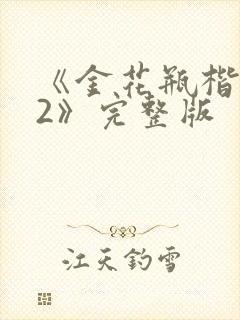 《金花瓶楷
2》完整版
江天钓雪